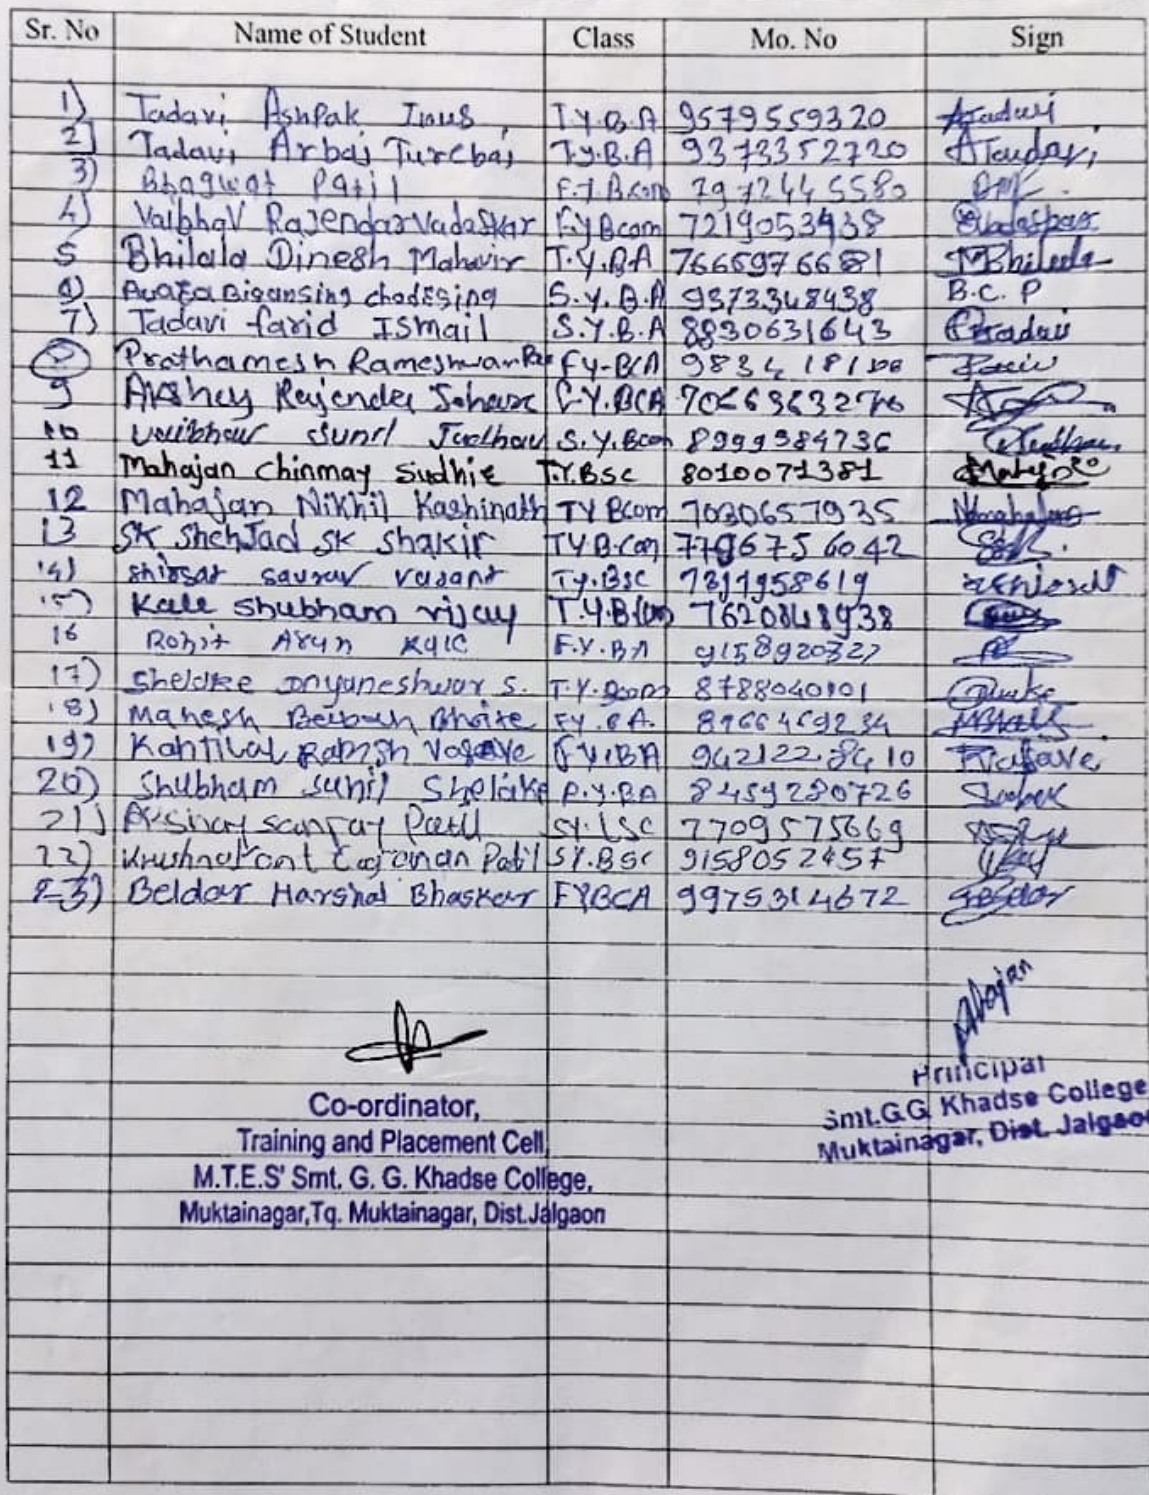 Sr. No Name of Student Class Mo. No Sign
1) Tadavi Ashpak Inus T.Y.B.A 9579559320 ATadvi
2) Tadavi Arbaj Turebaj T.y.B.A 9373352720 ATadavi
3) Bhagwat Patil F.Y.B.com 7972445580
4) Vaibhav Rajendar Vadaskar F.yBcom 7219053438
5 Bhilala Dinesh Mahavir T.Y.BA 7665976681 MBhilala
Bigansing S.Y.B.A 9373348438 B.C. P
7) Tadavi farid ISmail S.Y.B.A 8830631643
Prathamesh Rameshwar FY-BCA
9 Akshay Rajender F.Y.BCA
10 Vaibhav Sunil Jadhav S.Y.Bcom 8999384736
11 Mahajan Chinmay Sudhir T.Y.BSC 8010071381
12 Mahajan Nikhil Kashinath TY Bcom 7030657935
13 SK ShehJad SK Shakir TYB.com 7796756042
14) Shirsat saurav vasant Ty.BSC
15) Kale Shubham vijay T.Y.B.com 7620848938
16 Rohit Arun Kale F.Y.BA
17) Shelake Dnyaneshwar S. T.Y.Bcom 8788040101
18) Mahesh Bhoite FY.BA.
19) Kantilal FY.BA
20) Shubham Sunil Shelake F.Y.BA 8459280726
21) Akshay sanjay Patil 7709575669
22) Krushnakant Gajanan Patil SY.BSC 9158052457
23) Beldar Harshal Bhaskar FYBCA 9975314672
Co-ordinator,
Training and Placement Cell,
M.T.E.S' Smt. G. G. Khadse College,
Muktainagar,Tq. Muktainagar, Dist.Jalgaon
Principal
Smt.G.G. Khadse College
Muktainagar, Dist. Jalgaon